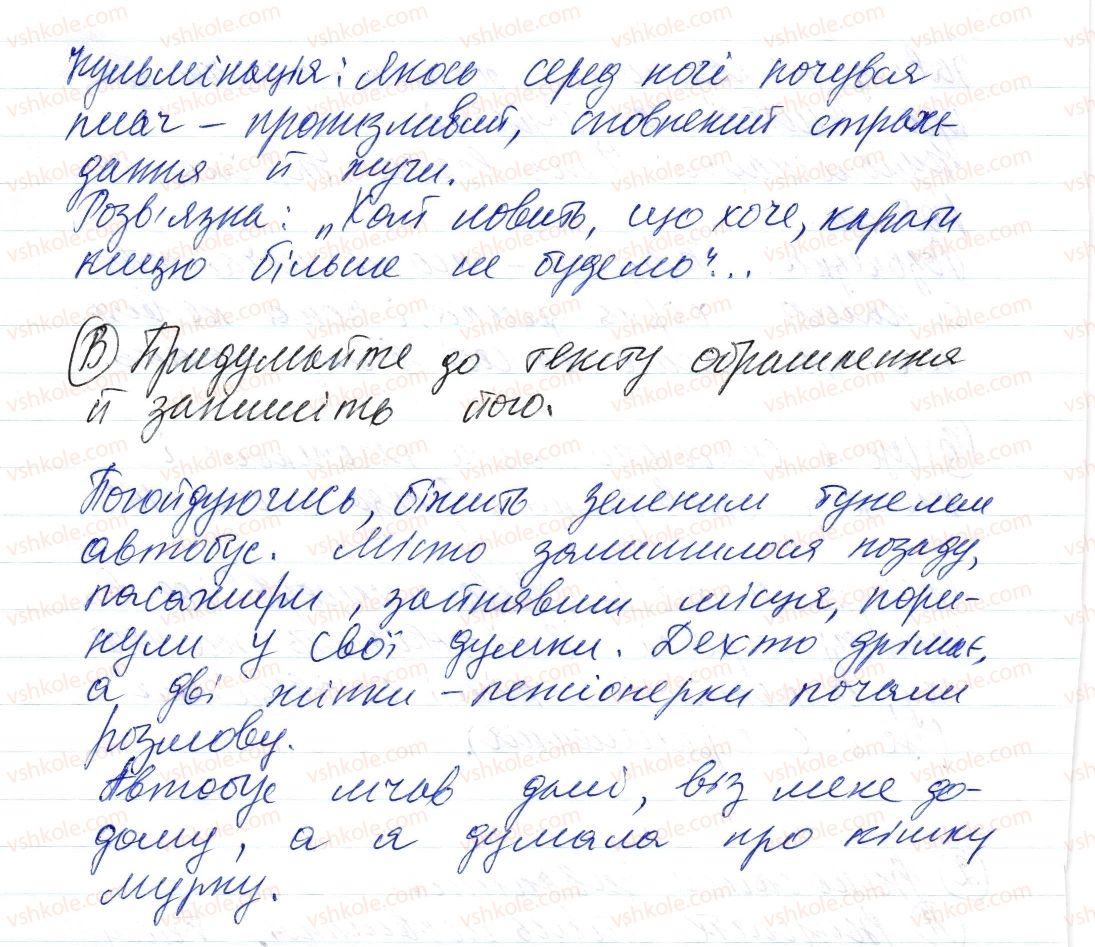 Кульмінація: Якось серед ночі почувся
плач – пронизливий, сповнений страж-
дання й муки.
Розв'язка: „Хай ловить, що хоче, карати
кицю більше не будемо"...
В Придумайте до тексту обрамлення
й запишіть його.
Погойдуючись, біжить зеленим тунелем
автобус. Місто залишилося позаду,
пасажири, зайнявши місця, пори-
нули у свої думки. Дехто дрімає,
а дві жінки – пенсіонерки почали
розмову.
Автобус мчав далі, віз мене до-
дому, а я думала про кішку
Мурку.